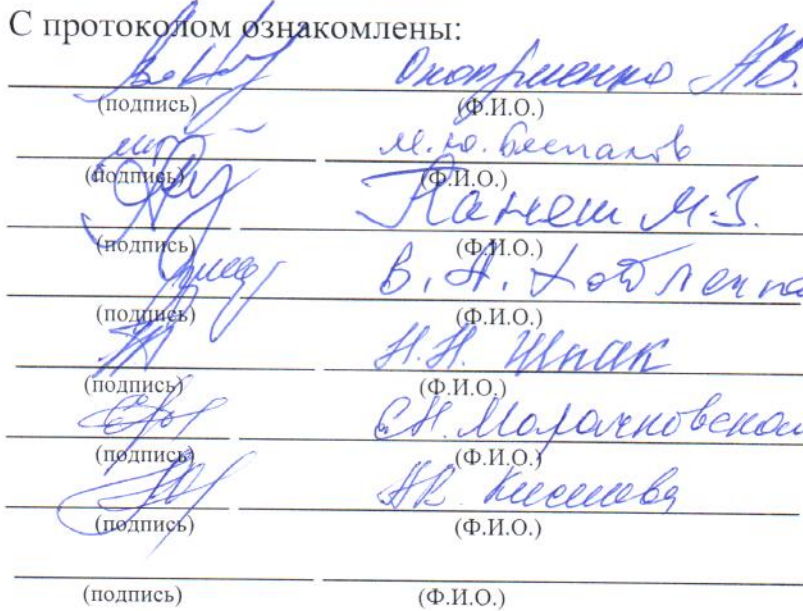 С протоколом ознакомлены:
А.В.
(подпись) (Ф.И.О.)
М.Ю. Беспалов
(подпись) (Ф.И.О.)
Панеш М.З.
(подпись) (Ф.И.О.)
В.А.
(подпись) (Ф.И.О.)
Н.Н. Шпак
(подпись) (Ф.И.О.)
С.Н.
(подпись) (Ф.И.О.)
А.К. Киселева
(подпись) (Ф.И.О.)
(подпись) (Ф.И.О.)